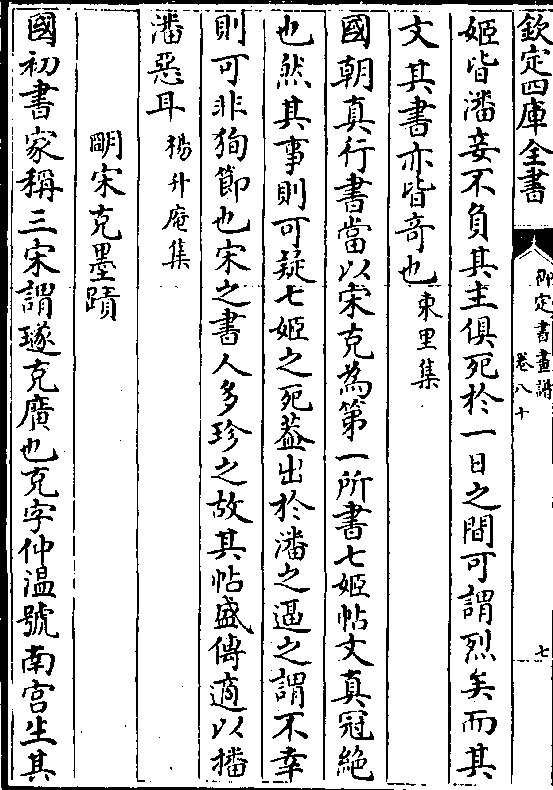 欽定四庫全書
御定書畫譜
卷八十
七
姬皆潘妾不負其主俱死於一日之間可謂烈矣而其
文其書亦皆竒也東里集
國朝真行書當以宋克為第一所書七姬帖文真冠絶
也然其事則可疑七姬之死葢出於潘之逼之謂不幸
則可非狥節也宋之書人多珍之故其帖盛傳適以播
潘惡耳楊升庵集
明宋克墨蹟
國初書家稱三宋謂璲克廣也克字仲温號南宫生其